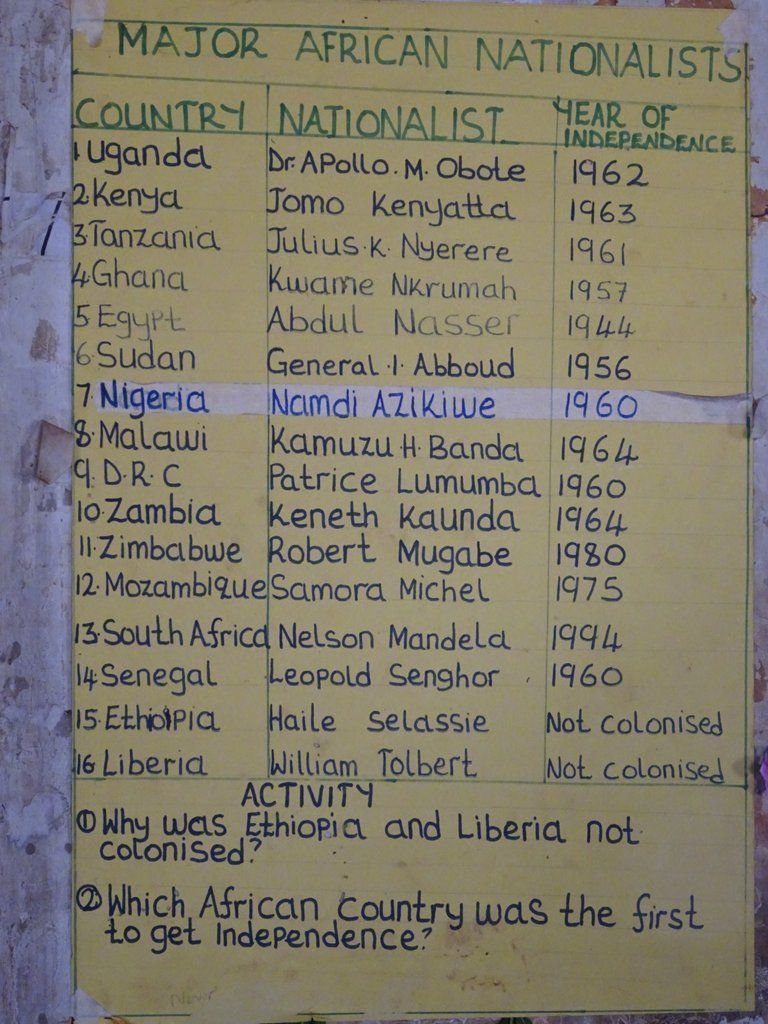 MAJOR AFRICAN NATIONALISTS
COUNTRY NATIONALIST YEAR OF INDEPENDENCE
1 Uganda Dr. APollo. M. Obote 1962
2. Kenya Jomo Kenyatta 1963
3 Tanzania Julius. K. Nyerere 1961
4 Ghana Kwame NKrumah 1957
5 Egypt Abdul Nasser 1944
6. Sudan General .I. Abboud 1956
7. Nigeria Namdi AZiKiwe 1960
8. Malawi Kamuzu H. Banda 1964
9. D.R.C Patrice Lumumba 1960
10. Zambia Keneth Kaunda 1964
11. Zimbabwe Robert Mugabe 1980
12. Mozambique Samora Michel 1975
13. South Africa Nelson Mandela 1994
14 Senegal Leopold Senghor 1960
15. Ethiopia Haile Selassie Not Colonised
16 Liberia William Tolbert Not Colonised
ACTIVITY
① Why was Ethiopia and Liberia not
colonised?
② Which African country was the first
to get Independence?